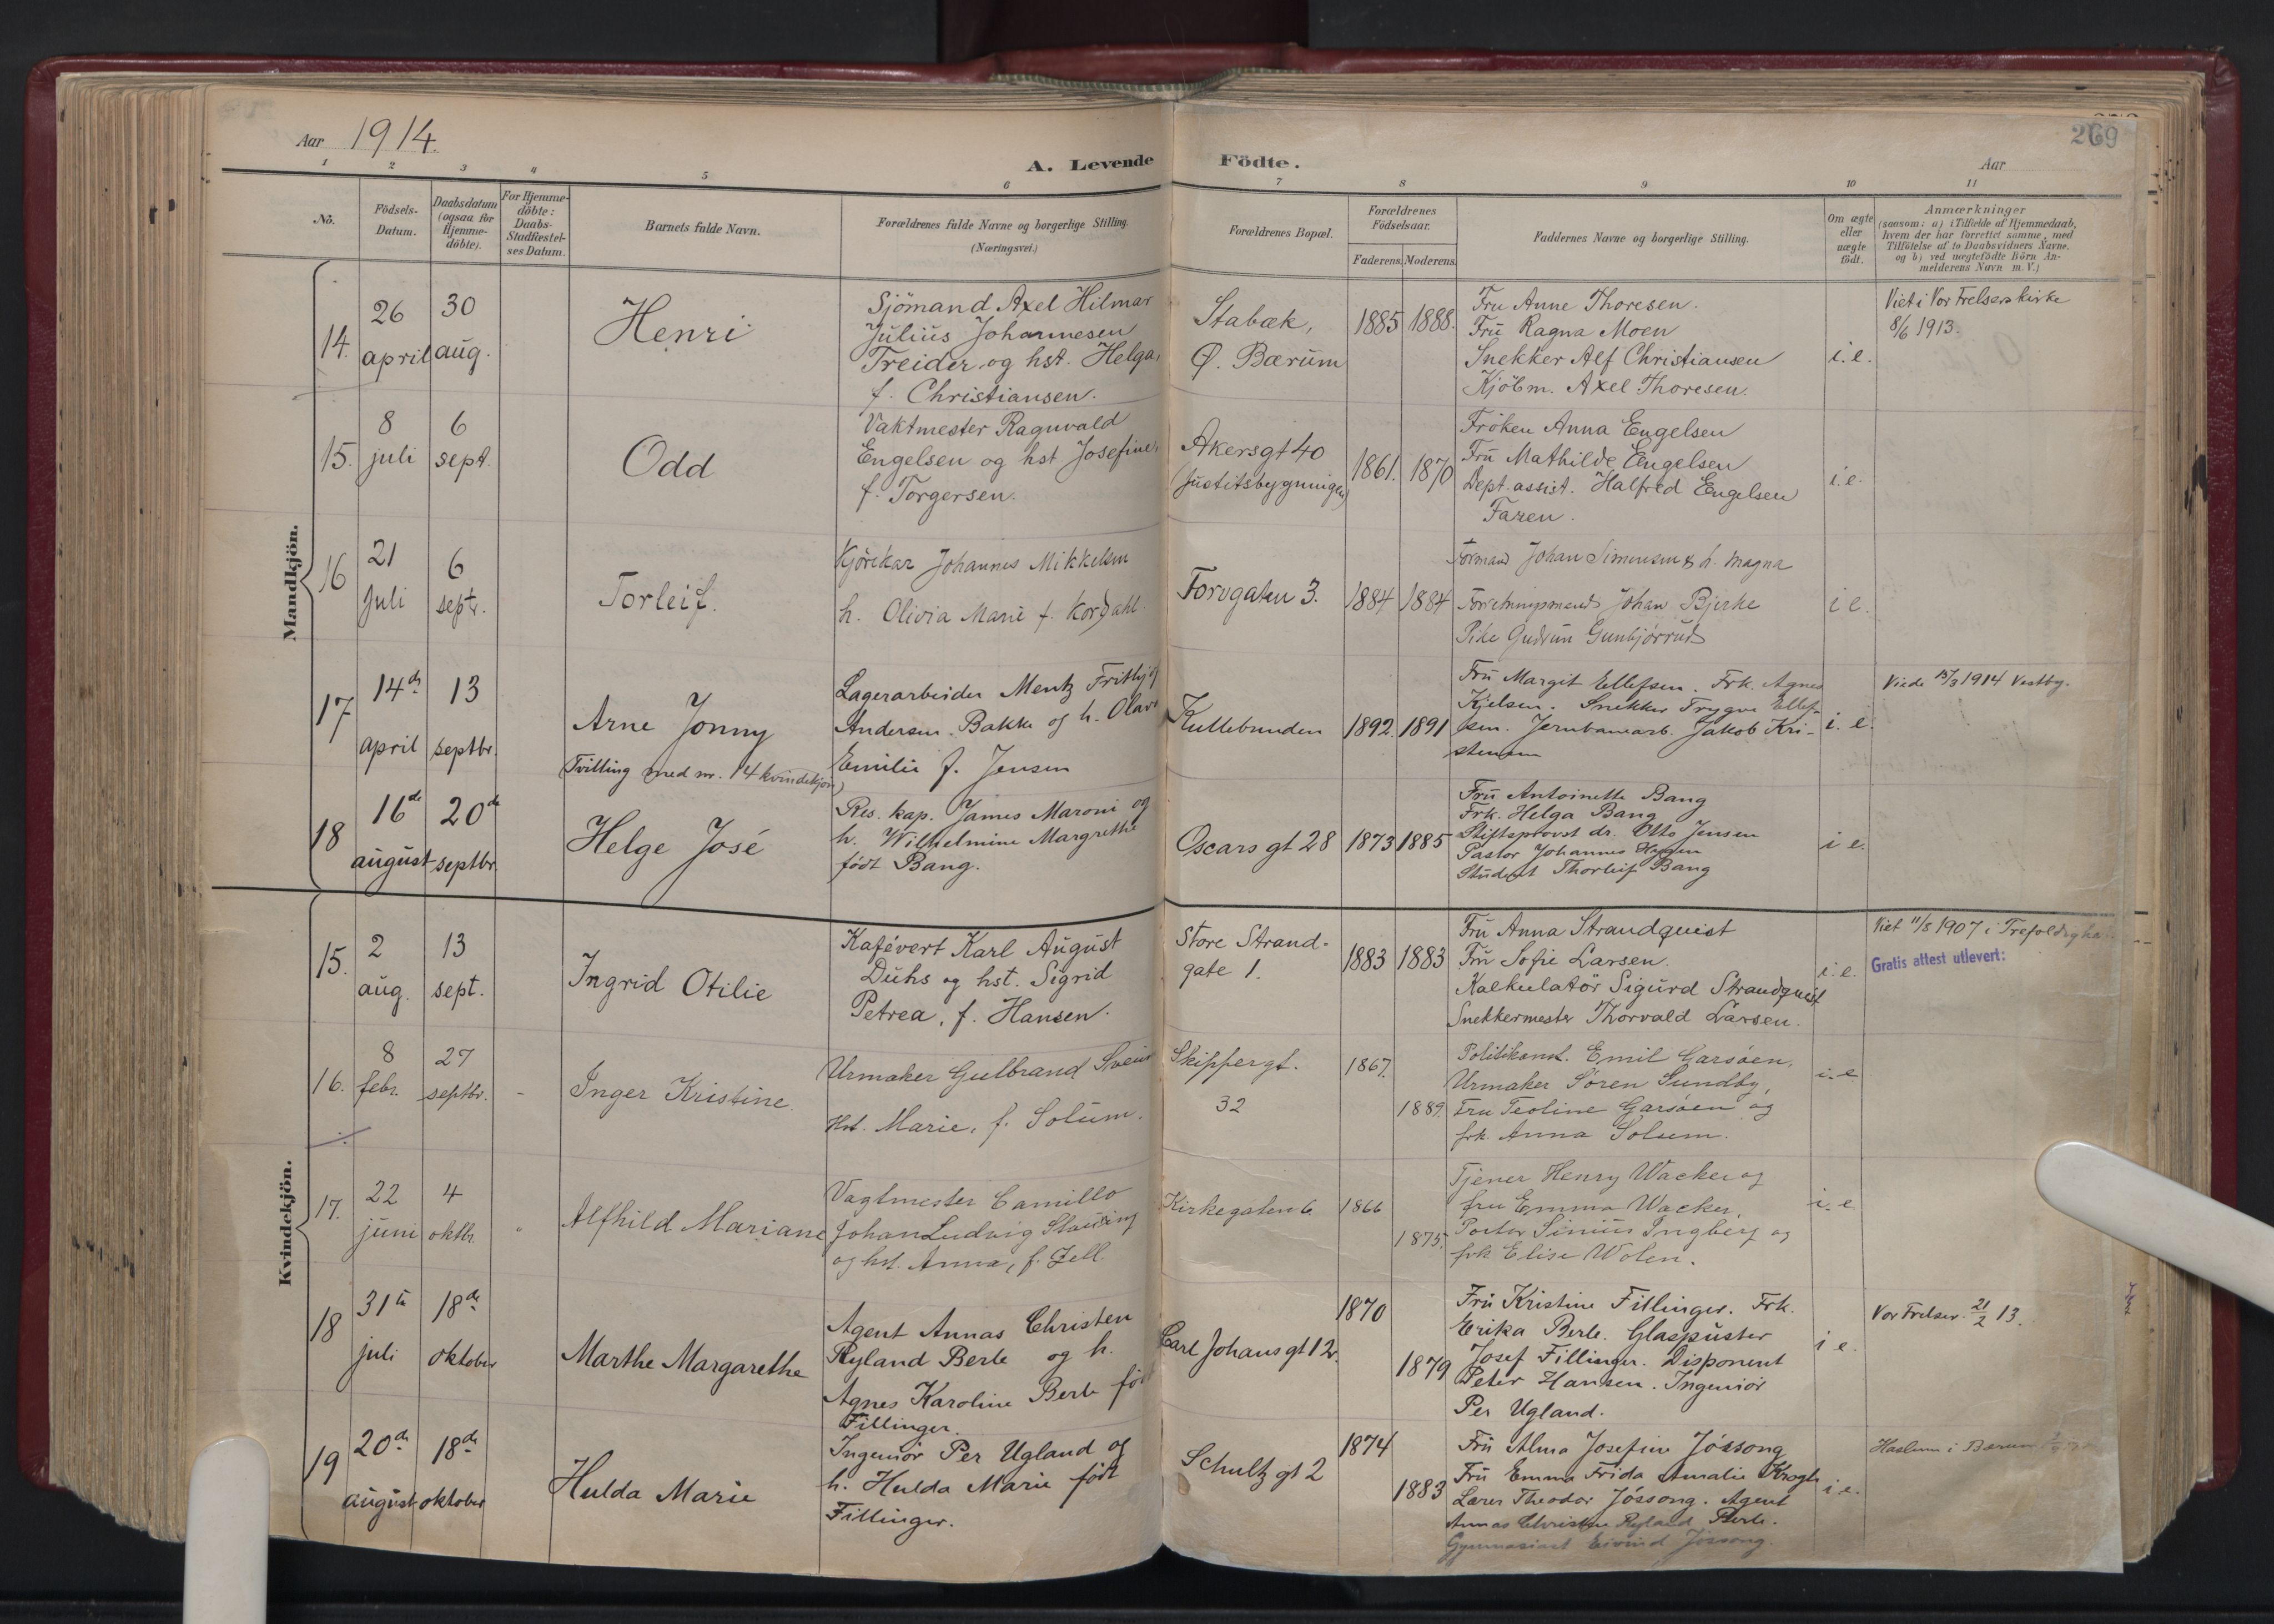 269
Aar 1914.
A. Levende Födte.
Aar
1 2 3 4 5 6 7 8 9 10 11
No.
Födsels-
Datum.
Daabsdatum
(ogsaa for
Hjemme-
döbte).
For Hjemme-
döbte:
Daabs-
Stadfæstel-
ses Datum.
Barnets fulde Navn.
Forældrenes fulde Navne og borgerlige Stilling.
(Næringsvei.)
Forældrenes Bopæl.
Forældrenes
Födselsaar.
Faderens. Moderens.
Faddernes Navne og borgerlige Stilling.
Om ægte
eller
uægte
födt.
Anmærkninger
(saasom: a) i Tilfælde af Hjemmedaab,
hvem der har forrettet samme, med
Tilföielse af to Daabsvidners Navne.
og b) ved uægtefödte Börn An-
melderens Navn m. V.)
Mandkjön.
14.
26
april
30
aug.
Henri
Sjömand Axel Hilmar
Julius Johannesen
Treider og hst. Helga,
f. Christiansen.
Stabæk,
Ø. Bærum
1885 1888.
Fru Anne Thoresen.
Fru Ragna Moen
Snekker Alf Christiansen
Kjöbm. Axel Thoresen.
i. e.
Viet i Vor Frelsers kirke
8/6 1913.
15.
8
juli
6
sept.
Odd
Vaktmester Ragnvald
Engelsen og hst Josefine,
f. Torgersen.
Akersgt 40
(Justitsbygningen)
1861. 1870
Fröken Anna Engelsen
Fru Mathilde Engelsen
Dept. assist. Halfred Engelsen
Faren.
i. e.
16
21
juli
6
septr.
Torleif.
Kjörekar Johannes Mikkelsen
h. Olivia Marie f. Kordahl.
Torvgaten 3.
1884 1884
Formand Johan Simensen & h. Magna
Forretningsmand Johan Bjerke
Pike Gudrun Gunbjörrud
i e.
17
14de
april
13
septbr.
Arne Jonny
(Tvilling med nr. 14 kvindekjön)
Lagerarbeider Mentz Frithjof
Andersen Bakke og h. Olava
Emilie f. Jensen
Kullebunden
1892 1891
Fru Margit Ellefsen. Frk. Agnes
Kjelsen. Snekker Trygve Ellef-
sen. Jernbanearb. Jakob Kri-
stensen
i. e.
Viede 15/3 1914 Vestby.
18
16de
august
20de
septbr.
Helge José
Res. kap. James Maroni og
h. Wilhelmine Margrethe
födt Bang.
Oscars gt 28
1873 1885
Fru Antoinette Bang
Frk. Helga Bang
Stiftsprovst dr. Otto Jensen
Pastor Johannes Hygen
Student Thorleif Bang
i e.
Kvindekjön.
15.
2
aug.
13
sept.
Ingrid Otilie
Kafévert Karl August
Duhs og hst. Sigrid
Petrea, f. Hansen.
Store Strand-
gate 1.
1883 1883
Fru Anna Strandquist
Fru Sofie Larsen.
Kalkulatör Sigurd Strandquist
Snekkermester Thorvald Larsen.
i. e.
Viet 11/8 1907 i
Gratis attest utlevert:
16.
8
febr.
27
septbr.
Inger Kristine.
Urmaker Gulbrand Sveine
Hst. Marie, f. Solum.
Skippergt.
32
1867.
1889.
Politikonst. Emil Garsöen,
Urmaker Sören Sundby,
Fru Teoline Garsöen og
frk. Anna Solum.
i. e
17.
22
juni
4
oktbr.
Alfhild Mariane
Vagtmester Camillo
Johan Ludvig
og hst. Anna, f. Zell.
Kirkegaten 6
1866
1875.
Tjener Henry Wacker og
fru Emma Wacker,
Portør Sinius Ingberg og
frk Elise Wolen.
i. e
18
31te
juli
18de
oktober
Marthe Margarethe
Agent Annas Christen
Ryland Berle og h.
Agnes Karoline Berle födt
Fillinger.
Carl Johans gt 12.
1870
1879
Fru Kristine Fillinger. Frk.
Erika Berle. Glaspuster
Josef Fillinger. Disponent
Peter Hansen. Ingeniör
Per Ugland.
i e.
Vor Frelser. 21/2 13.
19
20de
august
18de
oktober
Hulda Marie
Ingeniör Per Ugland og
h. Hulda Marie födt
Fillinger.
Schultz gt 2
1874
1883
Fru Alma Josefine Jössong
Fru Emma Frida Amalie Krogh
Lærer Theodor Jössong. Agent
Annas Christen Ryland Berle.
Gymnasiast Eivind Jössong.
i. e.
Haslum i Bærum